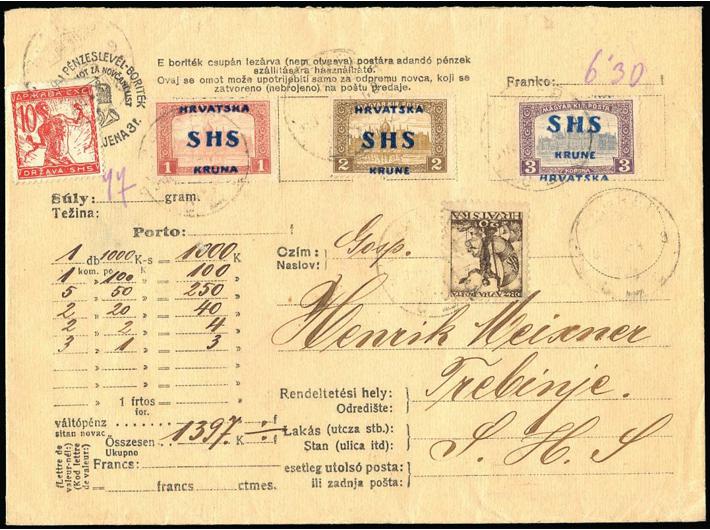 PÉNZESLEVÉL-BORITÉK
OMOT ZA NOVČANI LIST
CIJENA 3 f.
E boriték csupán lezárva (nem olvasva) postára adandó pénzek
szállitására használható.
Ovaj se omot može upotrijebiti samo za odpremu novca, koji se
zatvoreno (nebrojeno) na poštu predaje.
Franko: 6'30
10
DRŽAVA SHS
HRVATSKA
SHS
1 KRUNA 1
HRVATSKA
SHS
2 KRUNE 2
MAGYAR KIR. POSTA
SHS
3 KRUNE 3
HRVATSKA
Súly: 44 gram.
Težina:
Porto:
1 db 1000 K-s = 1000 K
1 kom. po 100 " = 100 "
5 " 50 " = 250 "
2 " 20 " = 40 "
2 " 2 " = 4 "
3 " 1 " = 3 "
" 1 frtos
for.
váltópénz
sitan novac f
Összesen 1397 K f
Ukupno
Francs:
(Lettre de
valeur-nél:)
(Kod lettre
de valeur:)
francs ctmes.
Czím:
Naslov:
Gosp.
20
HRVATSKA
DRŽAVNA POŠTA
Henrik Meixner
Rendeltetési hely:
Odredište:
Trebinje.
Lakás (utcza stb.):
Stan (ulica itd):
S. H. S
esetleg utolsó posta:
ili zadnja pošta: